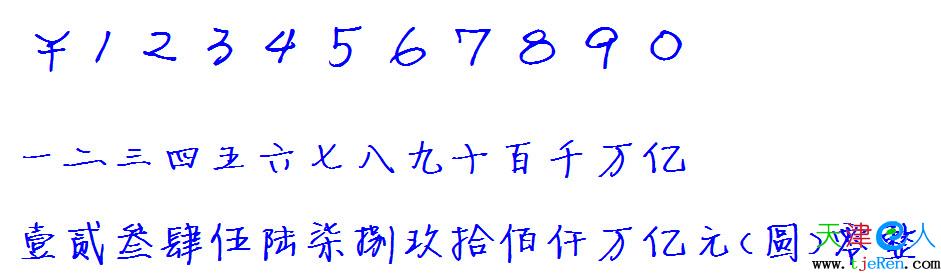 ￥1 2 3 4 5 6 7 8 9 0
一二三四五六七八九十百千万亿
壹贰叁肆伍陆柒捌玖拾佰仟万亿元(圓)零整
天津e人
www.tjeRen.com